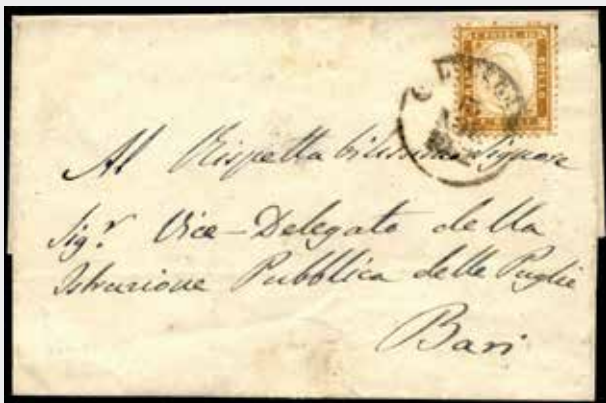 Al Rispettabilissimo Signore
Sig.r Vice-Delegato della
Istruzione Pubblica delle Puglie
Bari